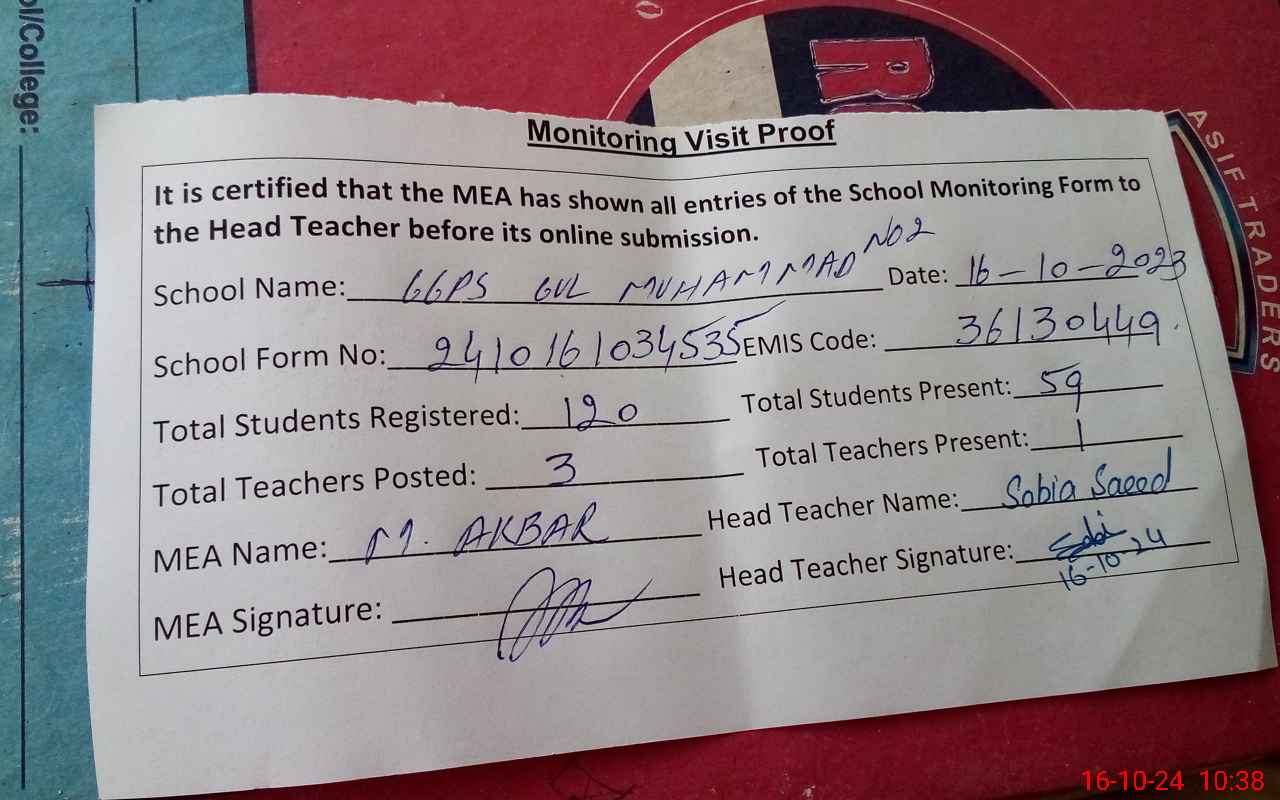 ol/College:
Monitoring Visit Proof
It is certified that the MEA has shown all entries of the School Monitoring Form to
the Head Teacher before its online submission.
School Name: GGPS GUL MUHAMMAD NO2 Date: 16-10-2023
School Form No: 2410161034535 EMIS Code: 36130449
Total Students Registered: 120 Total Students Present: 59
Total Teachers Posted: 3 Total Teachers Present: 1
MEA Name: M. AKBAR Head Teacher Name: Sobia Saeed
MEA Signature: Head Teacher Signature:
16-10-24
ASIF TRADERS
16-10-24 10:38